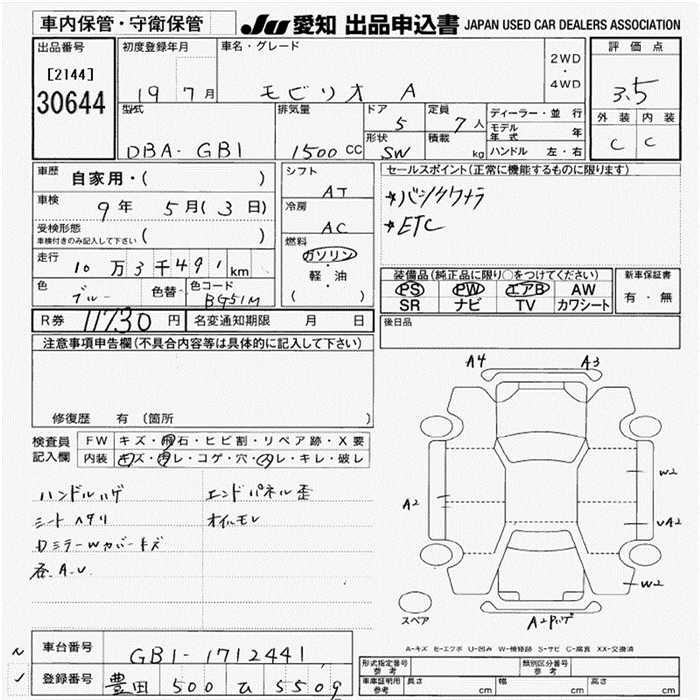 車内保管・守衛保管
JU 愛知 出品申込書 JAPAN USED CAR DEALERS ASSOCIATION
出品番号
[2144]
30644
初度登録年月
19 7月
車名・グレード
モビリオ A
2WD
・
4WD
評価点
3.5
外装 内装
C C
型式
DBA-GB1
排気量
1500 CC
ドア
5
形状
SW
定員
7人
積載
kg
ディーラー・並行
モデル年式 年
ハンドル 左・右
車歴
自家用・( )
車検
9年 5月(3日)
受検形態
車検付きのみ記入して下さい ( )
走行
10万3千491km
色
ブルー
色替
色コード
BG51M
シフト
AT
冷房
AC
燃料
ガソリン
・
軽・油
( )
セールスポイント(正常に機能するものに限ります)
*バックカメラ
*ETC
装備品(純正品に限り○をつけてください)
PS PW エアB AW
SR ナビ TV カワシート
新車保証書
有・無
R券 11730円
名変通知期限 月 日
後日品
注意事項申告欄(不具合内容等は具体的に記入して下さい)
修復歴 有 (箇所 )
検査員
記入欄
FW キズ・飛石・ヒビ割・リペア跡・X要
内装 キズ・汚レ・コゲ・穴・スレ・キレ・破レ
ハンドルハゲ エンドパネル歪
シートヘタリ オイルモレ
Dミラーwカバーキズ
各A.U
A4 A3
A2
W2
UA2
W2
A2ハゲ
スペア
A-キズ E-エクボ U-凹み W-補修跡 S-サビ C-腐食 XX-交換済
車台番号
GB1-1712441
登録番号
豊田 500 ひ 5509
形式指定番号
参考
類別区分番号
参考
車庫証明用
参考
長さ cm
幅 cm
高さ cm